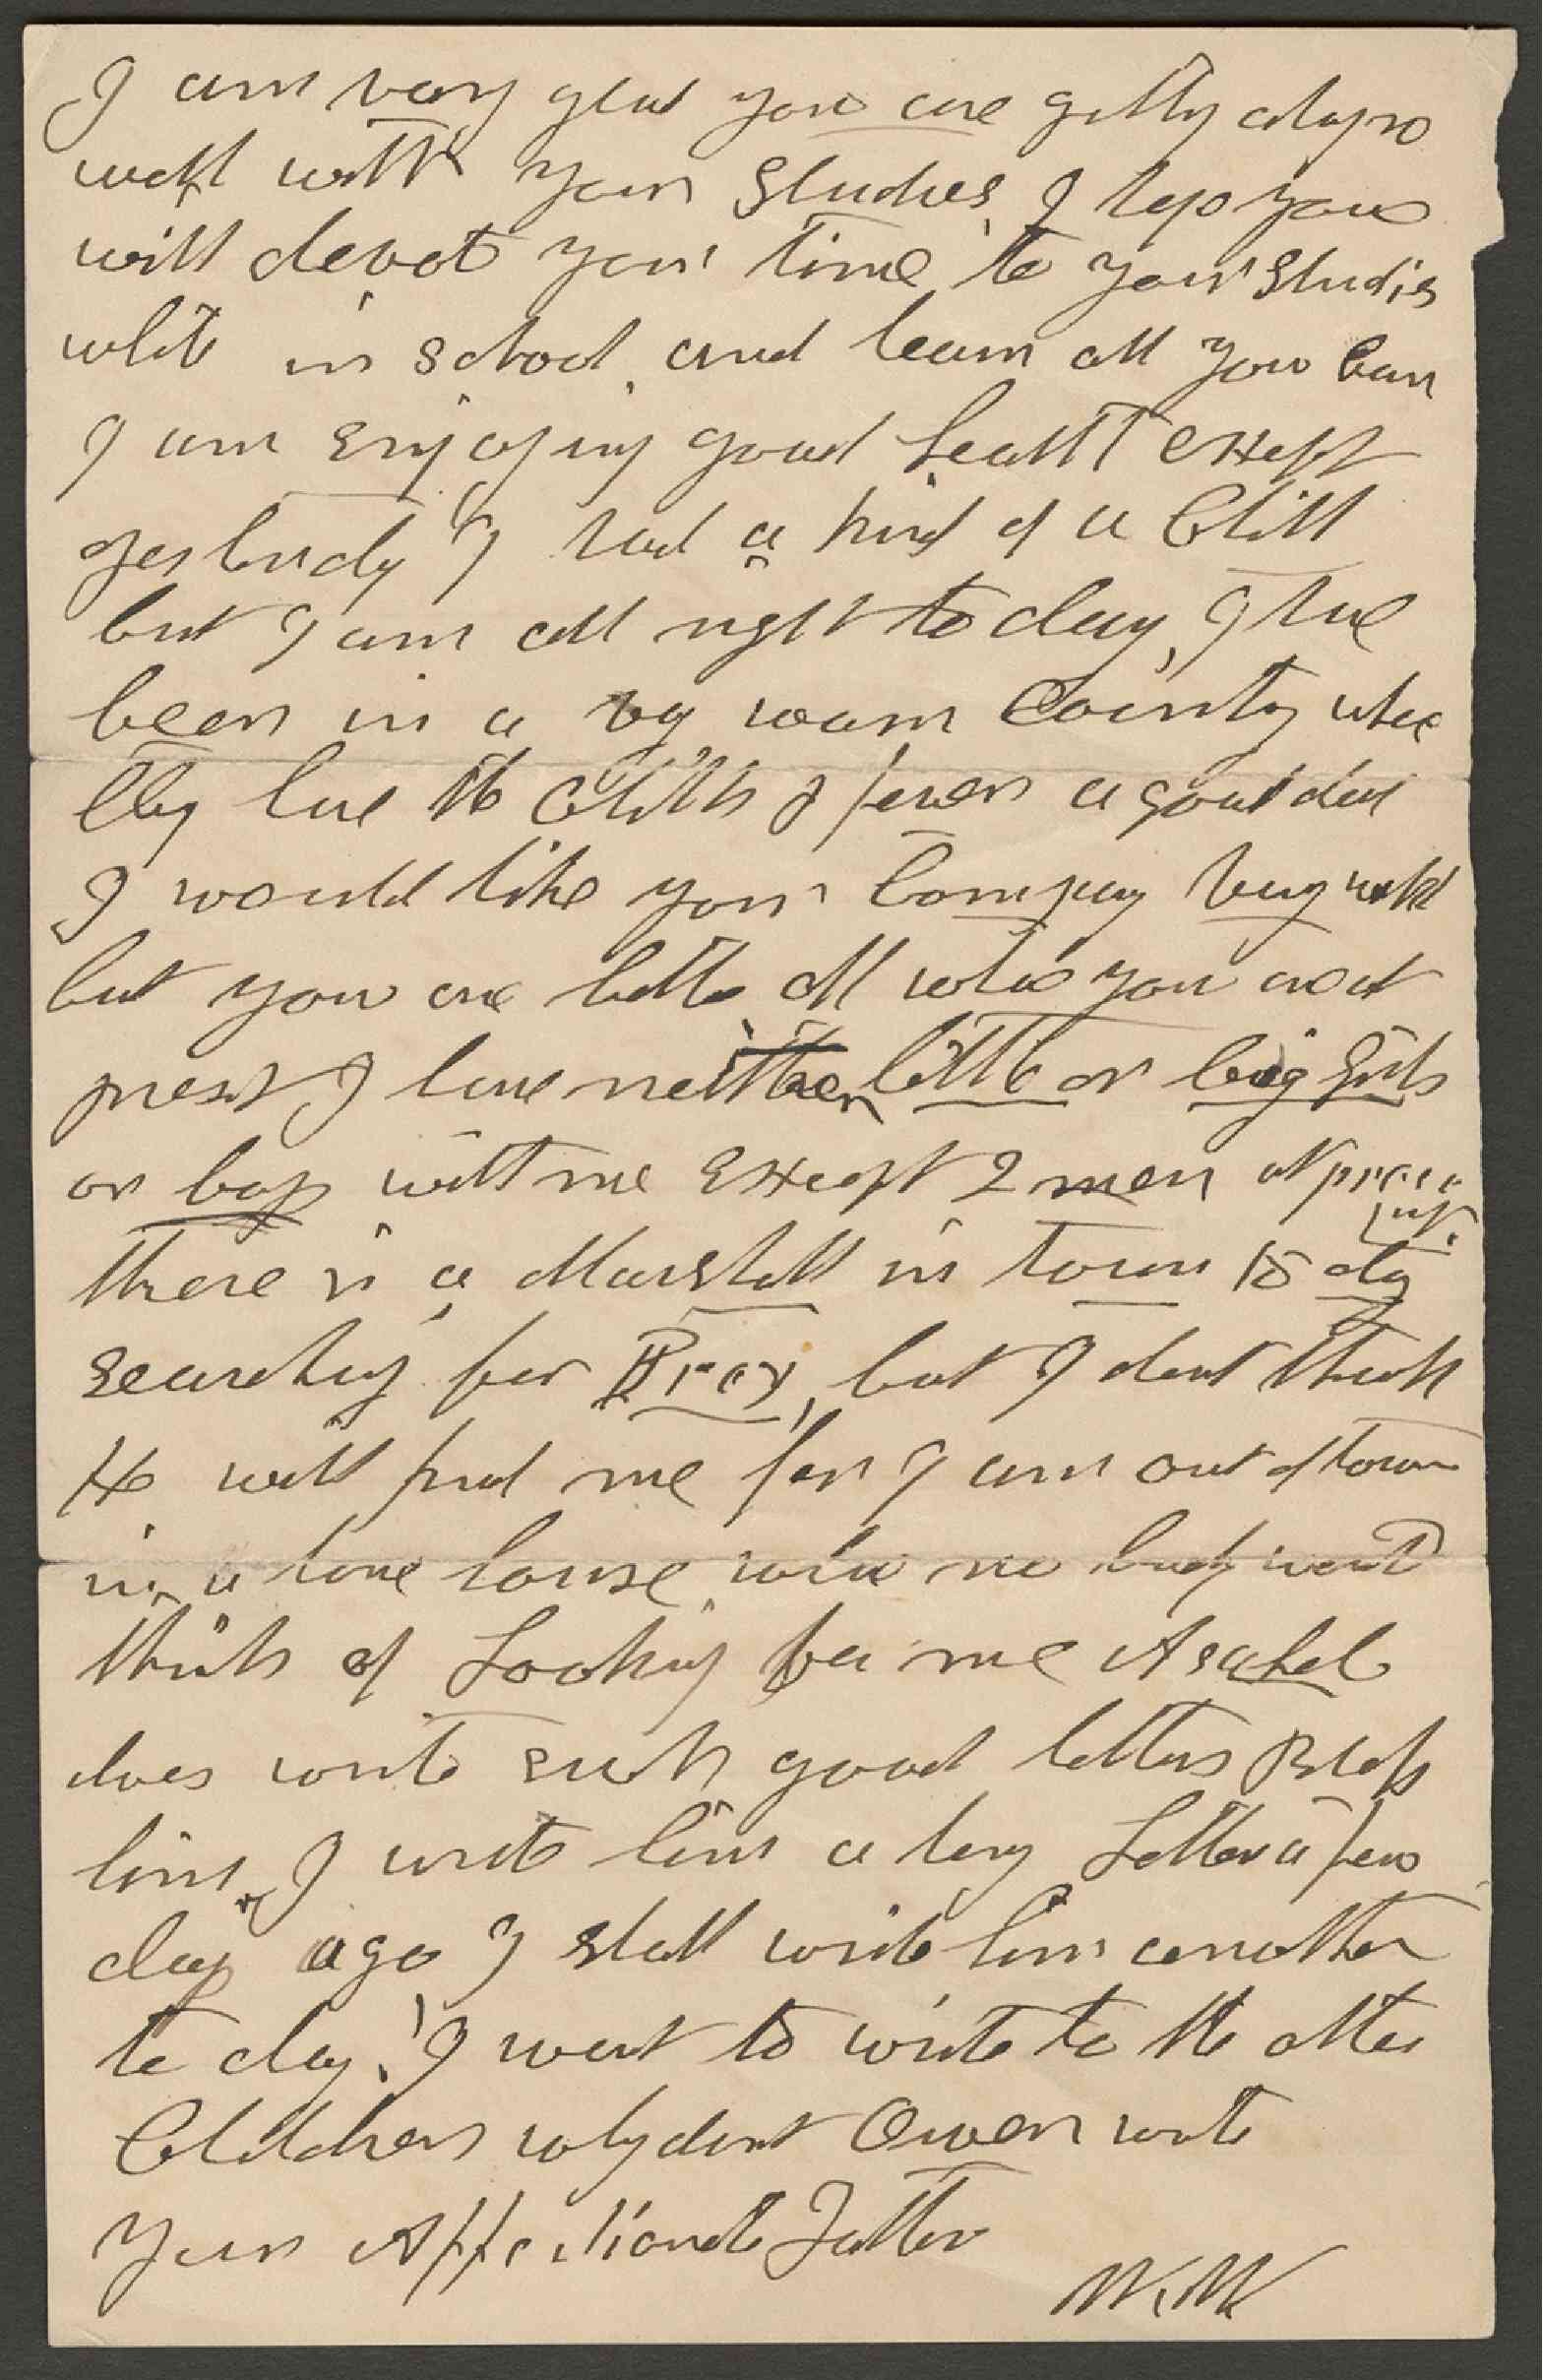 I am very glad you are getting along so
well with your Studies, I hope you
will devot your time to your Studies
while in School, and learn all you Can
I am Enjoying good health except
yesterday I had a kind of a Chill
but I am all right to day, I have
been in a very warm County where
they have the Chills & fever a good deal
I would like your Company very well
but you are better off where you are at
present I have neither little or big Girls
or boys with me Except 2 men at present.
there is a Marshall in town to day
searching for but I dont think
He will find me for I am out of town
in a lone house where no body would
think of Looking for me Asahel
does write such good letters Bless
him, I wrote him a long Letter a few
days ago & I shall write him another
to day, I want to write to the other
Children why dont Owen write
Your Affectionate Father
W. W.